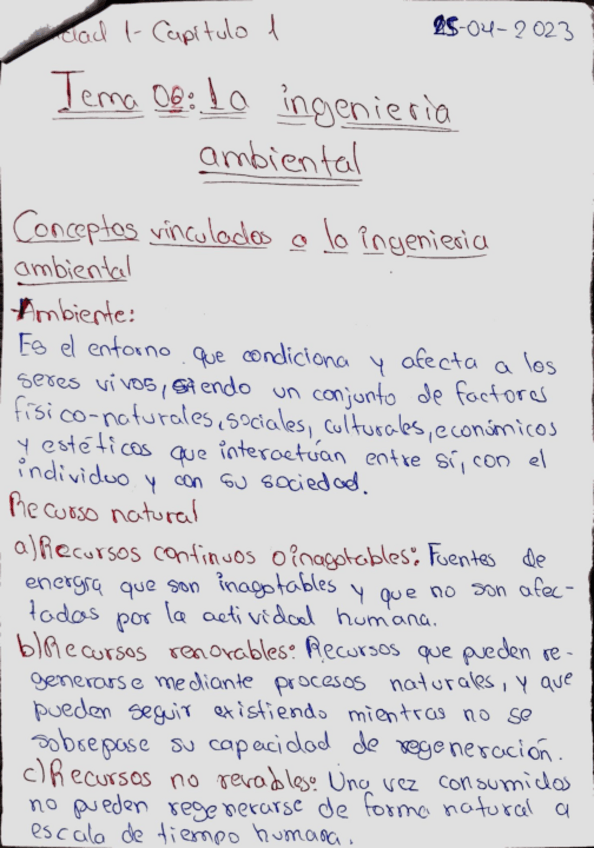 dad 1- Capítulo 1
25-04-2023
Tema 06: La ingenieria
ambiental
Conceptos vinculados a la ingenieria
ambiental
-Ambiente:
Es el entorno que condiciona y afecta a los
seres vivos, siendo un conjunto de factores
físico-naturales, sociales, culturales, económicos
y estéticos que interactúan entre sí, con el
individuo y con su sociedad.
Recurso natural
a) Recursos continuos o inagotables: Fuentes de
energía que son inagotables y que no son afec-
tadas por la actividad humana.
b) Recursos renovables: Recursos que pueden re-
generarse mediante procesos naturales, y que
pueden seguir existiendo mientras no se
sobrepase su capacidad de regeneración.
c) Recursos no revables: Una vez consumidos
no pueden regenerarse de forma natural a
escala de tiempo humana.